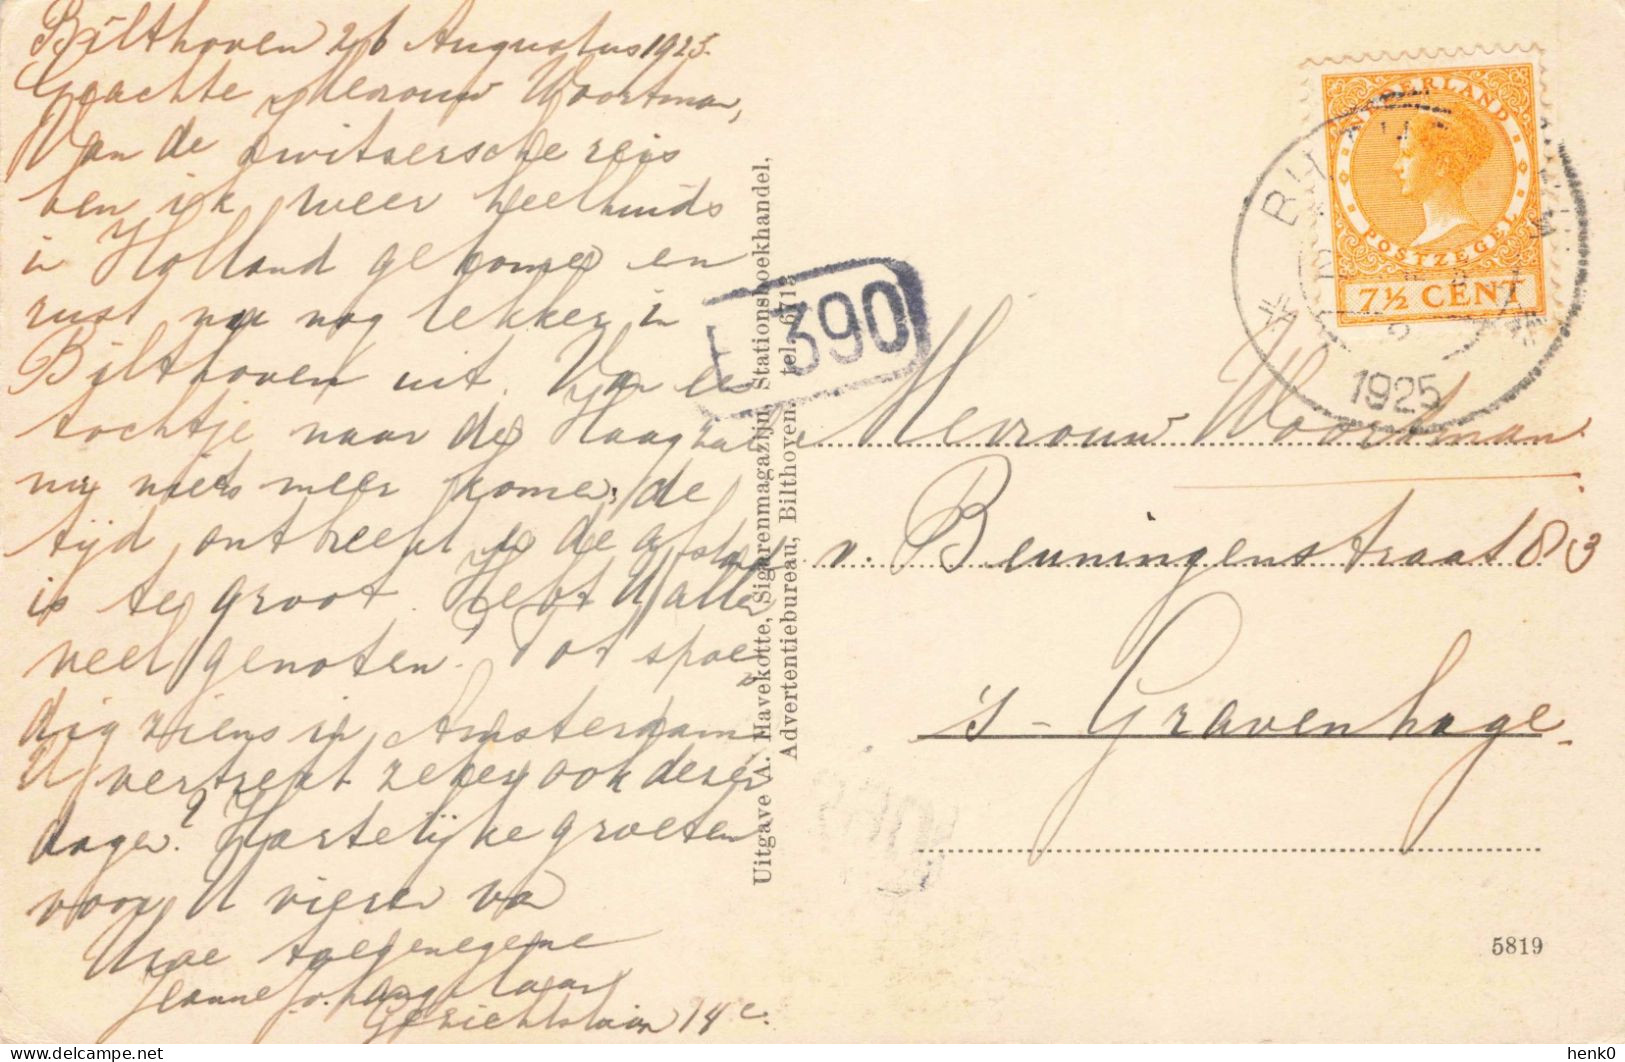 Bilthoven 26 Augustus 1925.
Geachte Mevrouw Woortman,
Van de Zwitsersche reis
ben ik weer heelhuids
in Holland gekomen en
rust nu nog lekker in
Bilthoven uit. Van een
tochtje naar den Haag zal
nu niets meer komen, de
tijd ontbreekt en de afstand
is te groot. Hebt U allen
veel genoten? Tot spoe-
dig ziens in Amsterdam
U vertrekt zeker ook dezer
dagen? Hartelijke groeten
voor U vieren van
Uwe toegenegene
Jeanne
Gerichtslaan 14c.
Uitgave A. Havekotte, Sigarenmagazijn, Stationsboekhandel,
Advertentiebureau, Bilthoven. tel. 671
390
NEDERLAND
POSTZEGEL
7½ CENT
1925
Mevrouw Woortman
v. Beuningenstraat 83
's-Gravenhage.
5819
henk0